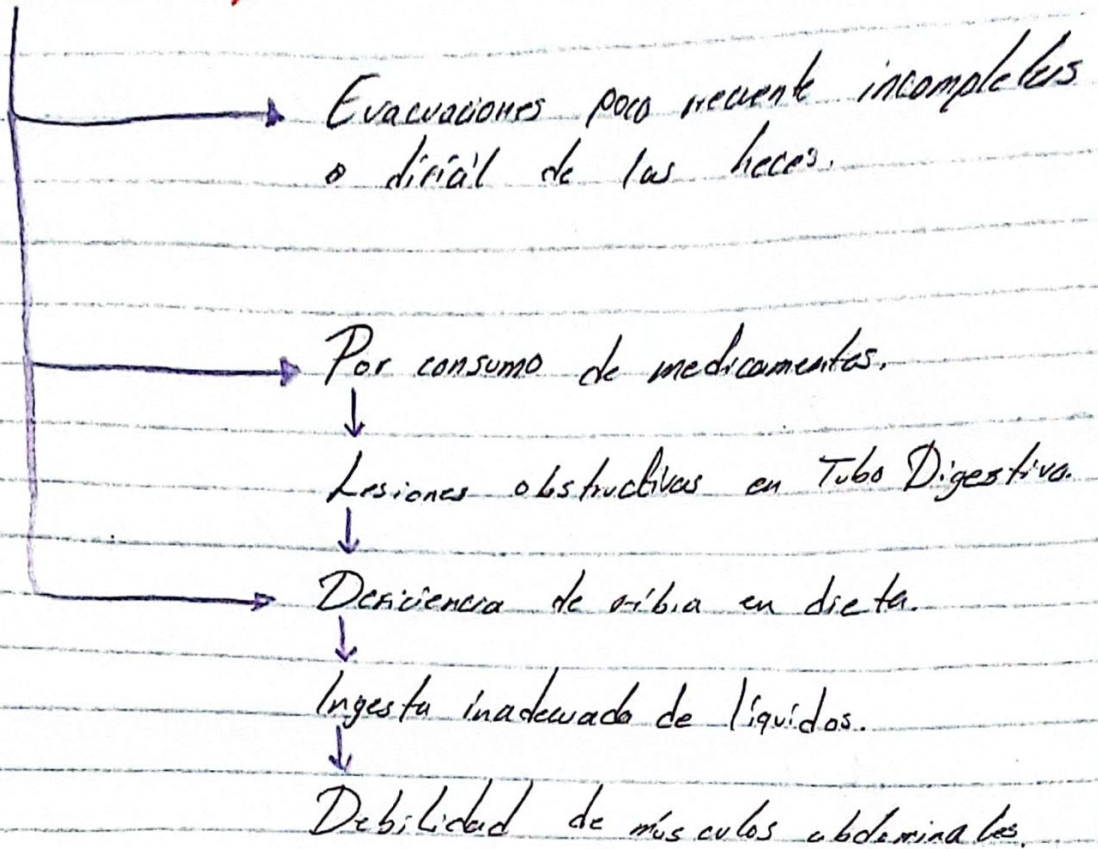 Evacuaciones poco frecuente incompletas
o difícil de las heces.
Por consumo de medicamentos.
Lesiones obstructivas en Tubo Digestivo.
Deficiencia de fibra en dieta.
Ingesta inadecuada de líquidos.
Debilidad de músculos abdominales.